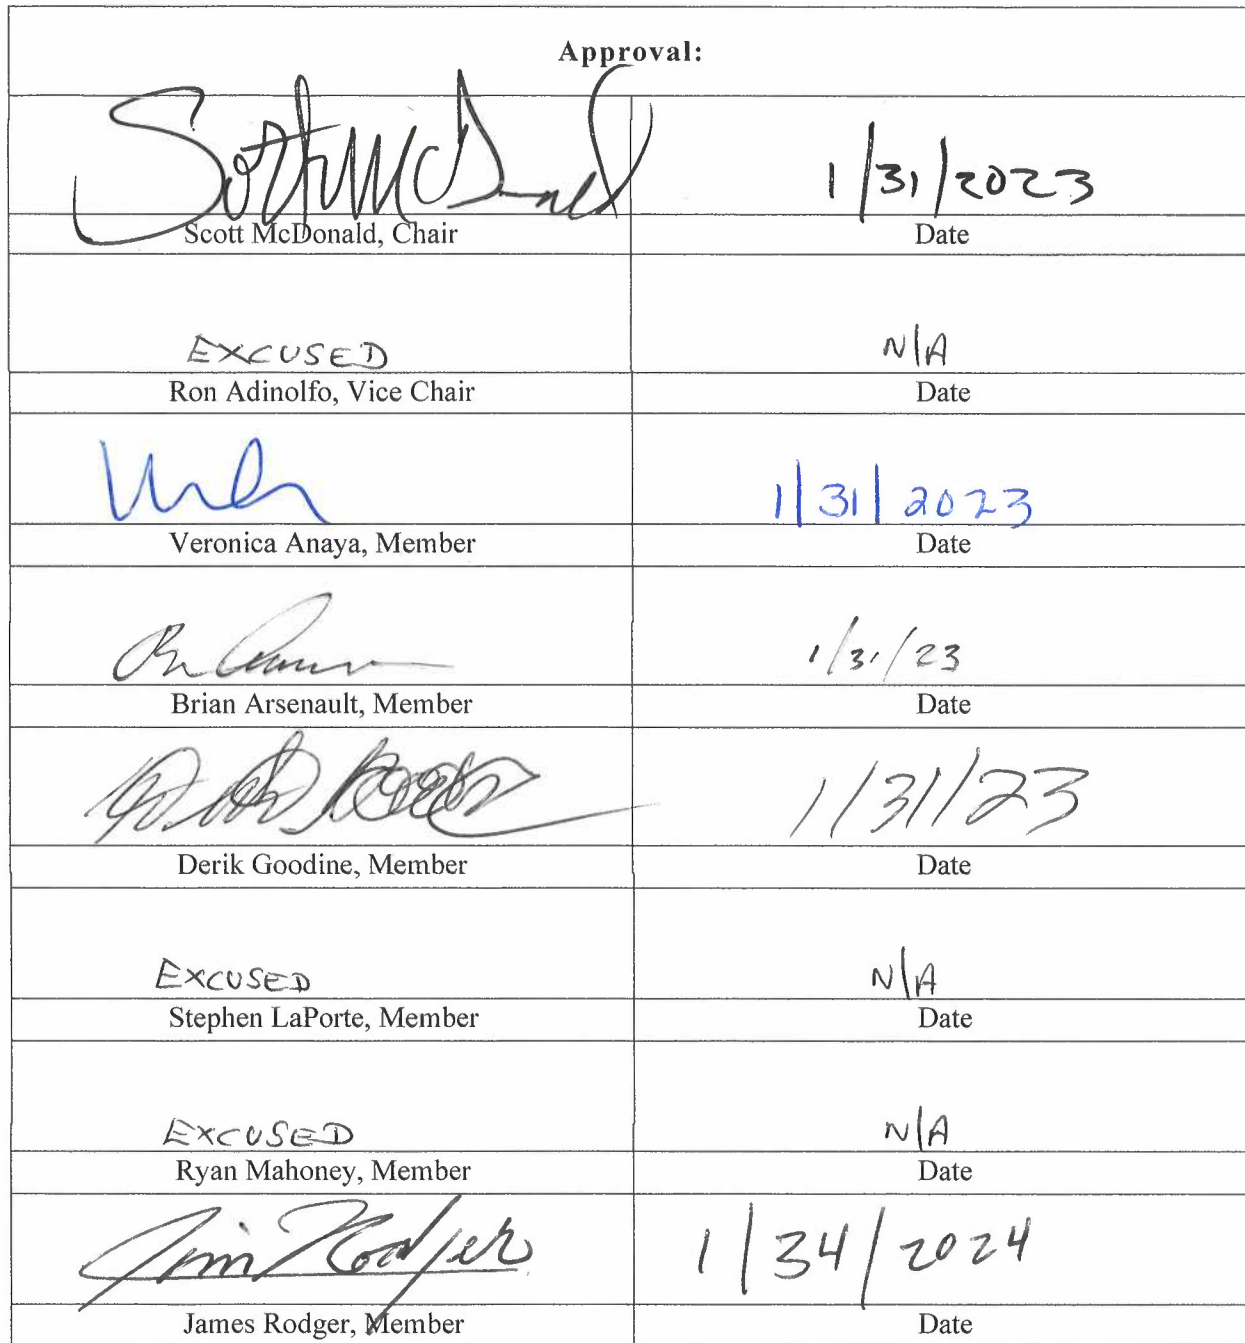 Approval:
Scott McDonald 1/31/2023
Scott McDonald, Chair Date
EXCUSED N/A
Ron Adinolfo, Vice Chair Date
1/31/2023
Veronica Anaya, Member Date
1/31/23
Brian Arsenault, Member Date
1/31/23
Derik Goodine, Member Date
EXCUSED N/A
Stephen LaPorte, Member Date
EXCUSED N/A
Ryan Mahoney, Member Date
Jim Rodger 1/34/2024
James Rodger, Member Date